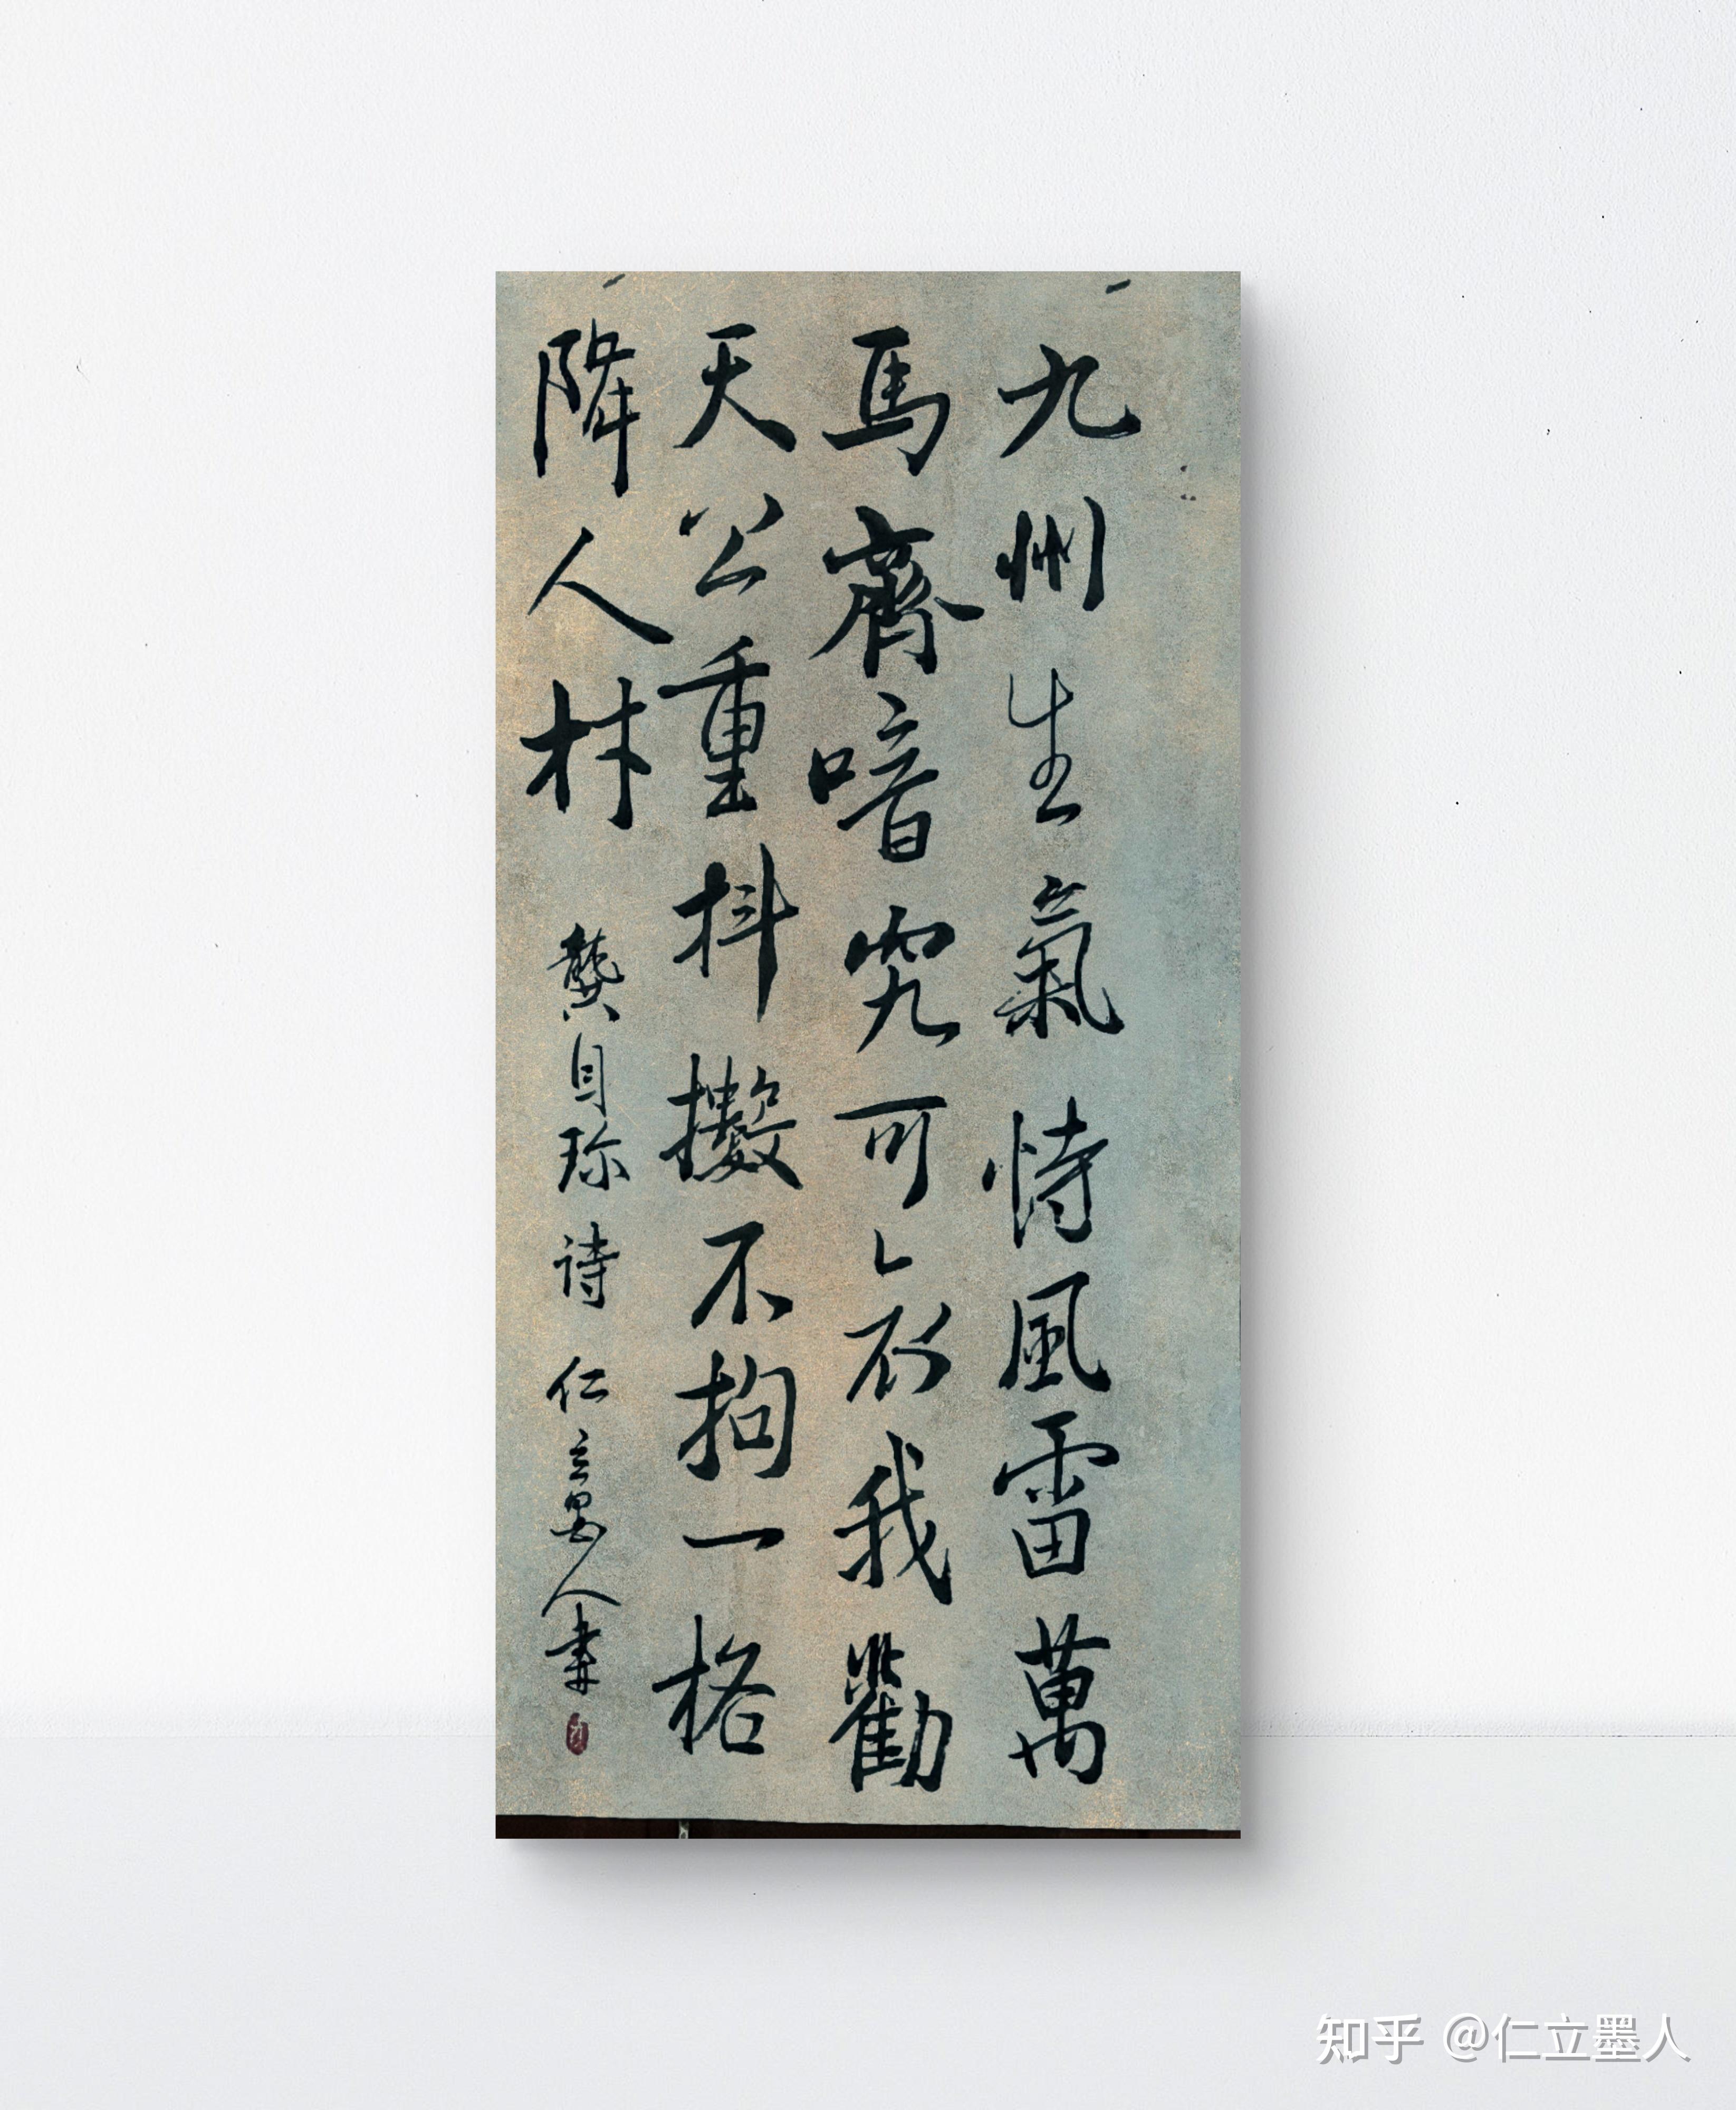 九州生氣恃風雷萬
馬齊喑究可哀我勸
天公重抖擻不拘一格
降人材
龔自珍诗 仁立墨人書
知乎 @仁立墨人